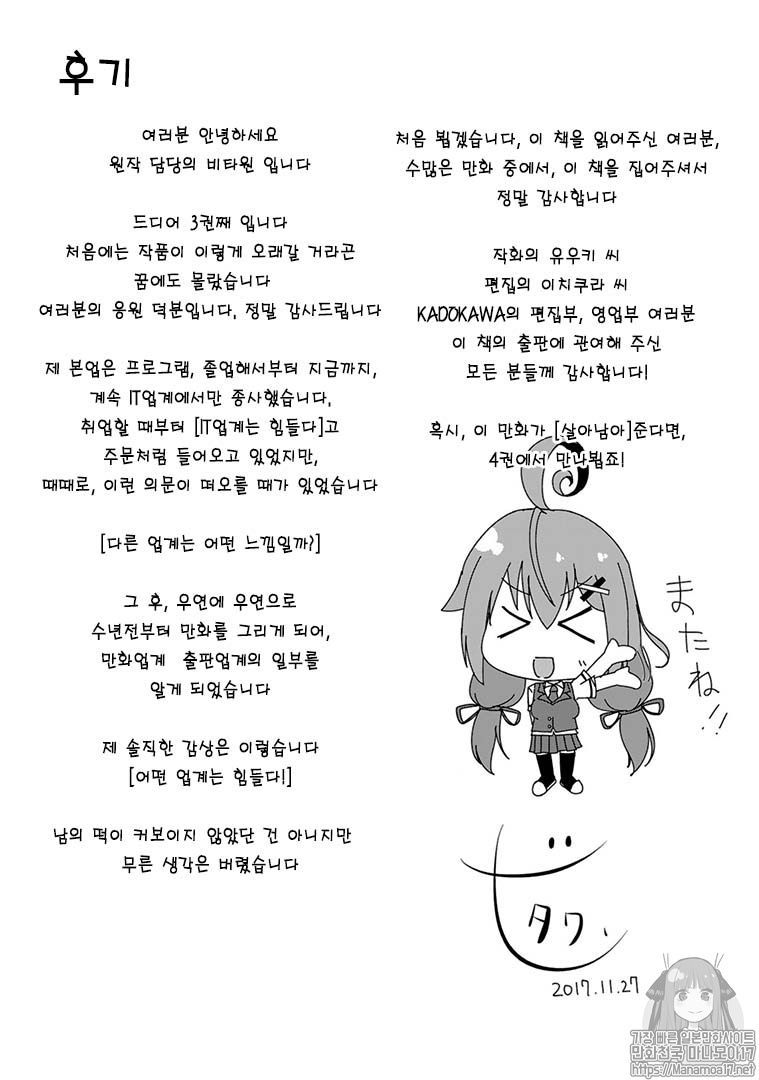 후기
여러분 안녕하세요
원작 담당의 비타원 입니다
드디어 3권째 입니다
처음에는 작품이 이렇게 오래갈 거라곤
꿈에도 몰랐습니다
여러분의 응원 덕분입니다, 정말 감사드립니다
제 본업은 프로그램, 졸업해서부터 지금까지,
계속 IT업계에서만 종사했습니다,
취업할 때부터 [IT업계는 힘들다]고
주문처럼 들어오고 있었지만,
때때로, 이런 의문이 떠오를 때가 있었습니다
[다른 업계는 어떤 느낌일까?]
그 후, 우연에 우연으로
수년전부터 만화를 그리게 되어,
만화업계 출판업계의 일부를
알게 되었습니다
제 솔직한 감상은 이렇습니다
[어떤 업계는 힘들다!]
남의 떡이 커보이지 않았단 건 아니지만
무른 생각은 버렸습니다
처음 뵙겠습니다, 이 책을 읽어주신 여러분,
수많은 만화 중에서, 이 책을 집어주셔서
정말 감사합니다
작화의 유우키 씨
편집의 이치쿠라 씨
KADOKAWA의 편집부, 영업부 여러분
이 책의 출판에 관여해 주신
모든 분들께 감사합니다!
혹시, 이 만화가 [살아남아]준다면,
4권에서 만나뵙죠!
またね!!
ビタワ.
2017.11.27
가장 빠른 일본만화사이트
만화천국 마나모아17
https://Manamoa17.net